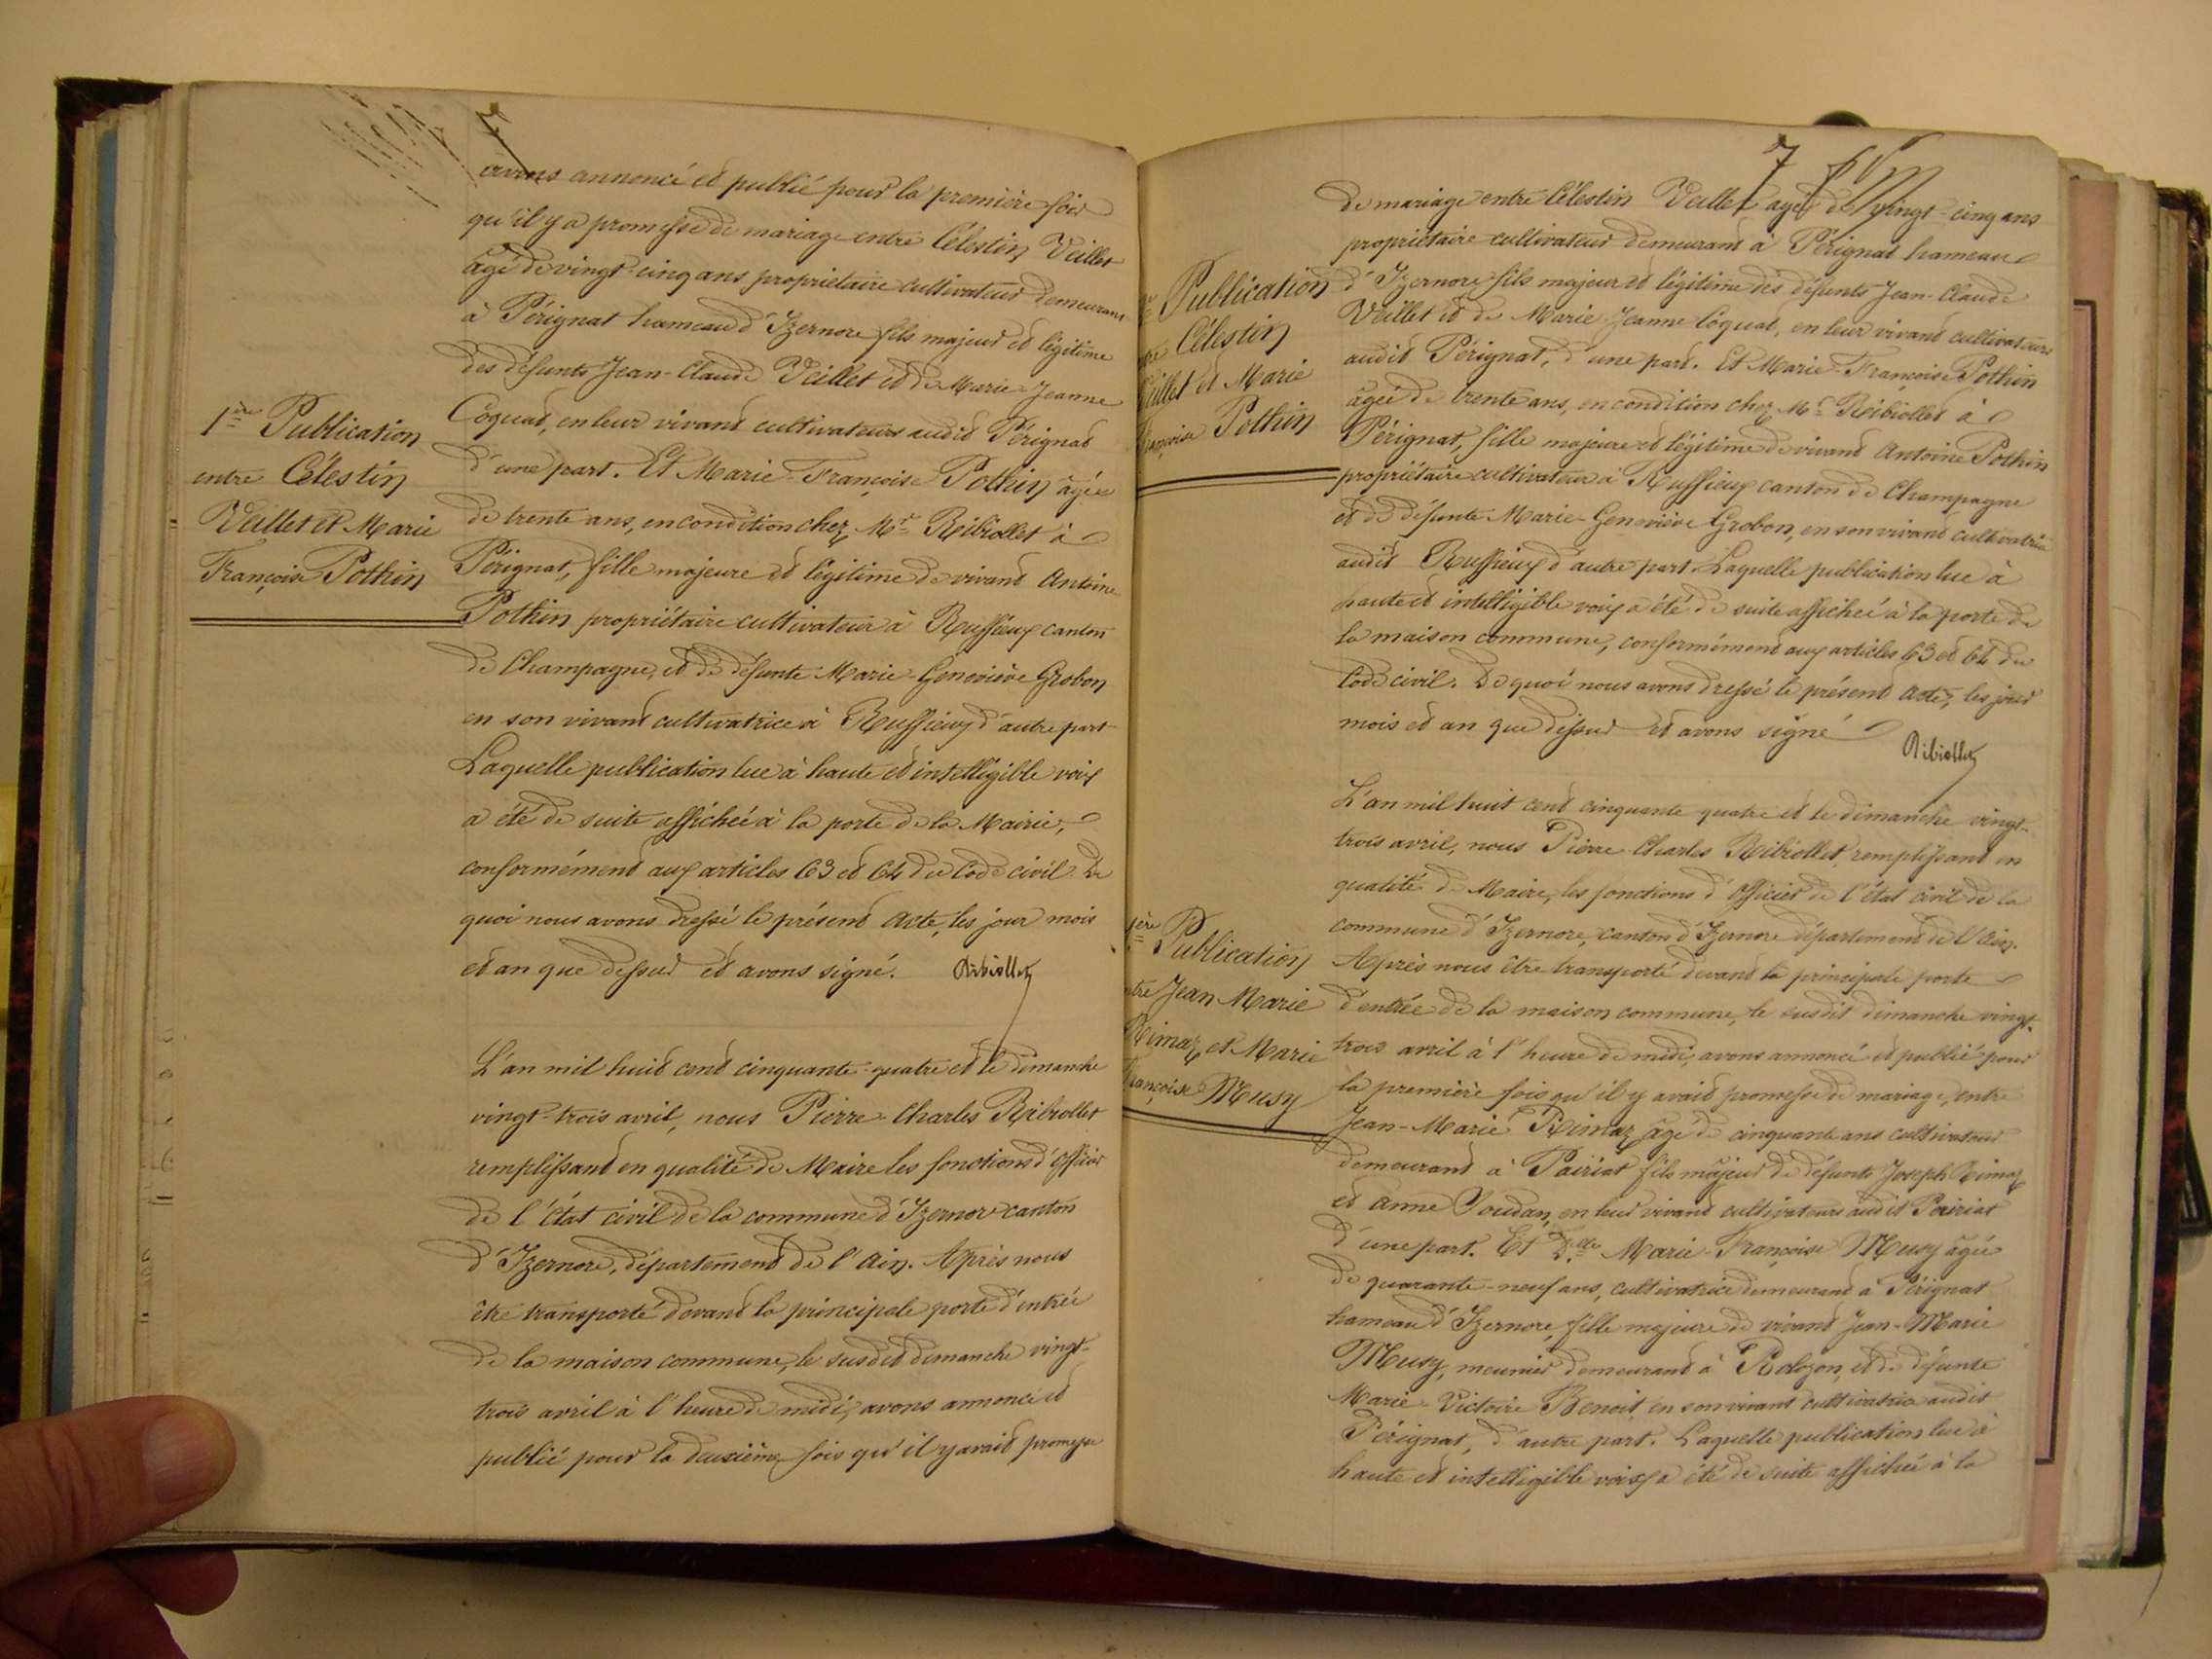 7
avons annoncé et publié pour la première fois
qu'il y a promesse de mariage entre Célestin Veillet
âgé de vingt-cinq ans propriétaire cultivateur demeurant
à Pérignat hameau d'Izernore fils majeur et légitime
des défunts Jean-Claude Veillet et de Marie-Jeanne
Coquat, en leur vivant cultivateurs audit Pérignat
d'une part. Et Marie-Françoise Pothin âgée
de trente ans, en condition chez Mr Ribiollet à
Pérignat, fille majeure et légitime de vivant Antoine
Pothin propriétaire cultivateur à Ruffieux canton
de Champagne, et de défunte Marie-Geneviève Grobon
en son vivant cultivatrice à Ruffieux d'autre part
Laquelle publication lue à haute et intelligible voix
a été de suite affichée à la porte de la Mairie,
conformément aux articles 63 et 64 du Code civil. De
quoi nous avons dressé le présent acte, les jour mois
et an que dessus et avons signé. Ribiollet
1ère Publication
entre Célestin
Veillet et Marie
Françoise Pothin
L'an mil huit cent cinquante-quatre et le dimanche
vingt-trois avril, nous Pierre-Charles Ribiollet
remplissant en qualité de Maire les fonctions d'officier
de l'état civil de la commune d'Izernore canton
d'Izernore, département de l'Ain. Après nous
être transporté devant la principale porte d'entrée
de la maison commune, le susdit dimanche vingt-
trois avril à l'heure de midi, avons annoncé et
publié pour la deuxième fois qu'il y avait promesse
7
de mariage entre Célestin Veillet âgé de vingt-cinq ans
propriétaire cultivateur demeurant à Pérignat hameau
d'Izernore fils majeur et légitime des défunts Jean-Claude
Veillet et de Marie-Jeanne Coquat, en leur vivant cultivateurs
audit Pérignat, d'une part. Et Marie-Françoise Pothin
âgée de trente ans, en condition chez Mr Ribiollet à
Pérignat, fille majeure et légitime de vivant Antoine Pothin
propriétaire cultivateur à Ruffieux canton de Champagne
et de défunte Marie-Geneviève Grobon, en son vivant cultivatrice
audit Ruffieux d'autre part. Laquelle publication lue à
haute et intelligible voix a été de suite affichée à la porte de
la maison commune, conformément aux articles 63 et 64 du
Code civil. De quoi nous avons dressé le présent acte, les jour
mois et an que dessus et avons signé
Ribiollet
Publication
Célestin
Veillet et Marie
Françoise Pothin
L'an mil huit cent cinquante-quatre et le dimanche vingt-
trois avril, nous Pierre-Charles Ribiollet remplissant en
qualité de Maire, les fonctions d'officier de l'état civil de la
commune d'Izernore, canton d'Izernore département de l'Ain.
Après nous être transporté devant la principale porte
d'entrée de la maison commune, le susdit dimanche vingt-
trois avril à l'heure de midi, avons annoncé et publié pour
la première fois qu'il y avait promesse de mariage, entre
Jean-Marie Rimaz âgé de cinquante ans cultivateur
demeurant à Pairiat fils majeur de défunts Joseph Rimaz
et Anne Joudan, en leur vivant cultivateurs audit Pairiat
d'une part. Et Delle Marie-Françoise Musy âgée
de quarante-neuf ans, cultivatrice demeurant à Pérignat
hameau d'Izernore, fille majeure de vivant Jean-Marie
Musy, meunier demeurant à Bolozon, et de défunte
Marie-Victoire Benoit en son vivant cultivatrice audit
Pérignat, d'autre part. Laquelle publication lue à
haute et intelligible voix a été de suite affichée à la
1ère Publication
entre Jean Marie
Rimaz et Marie
Françoise Musy